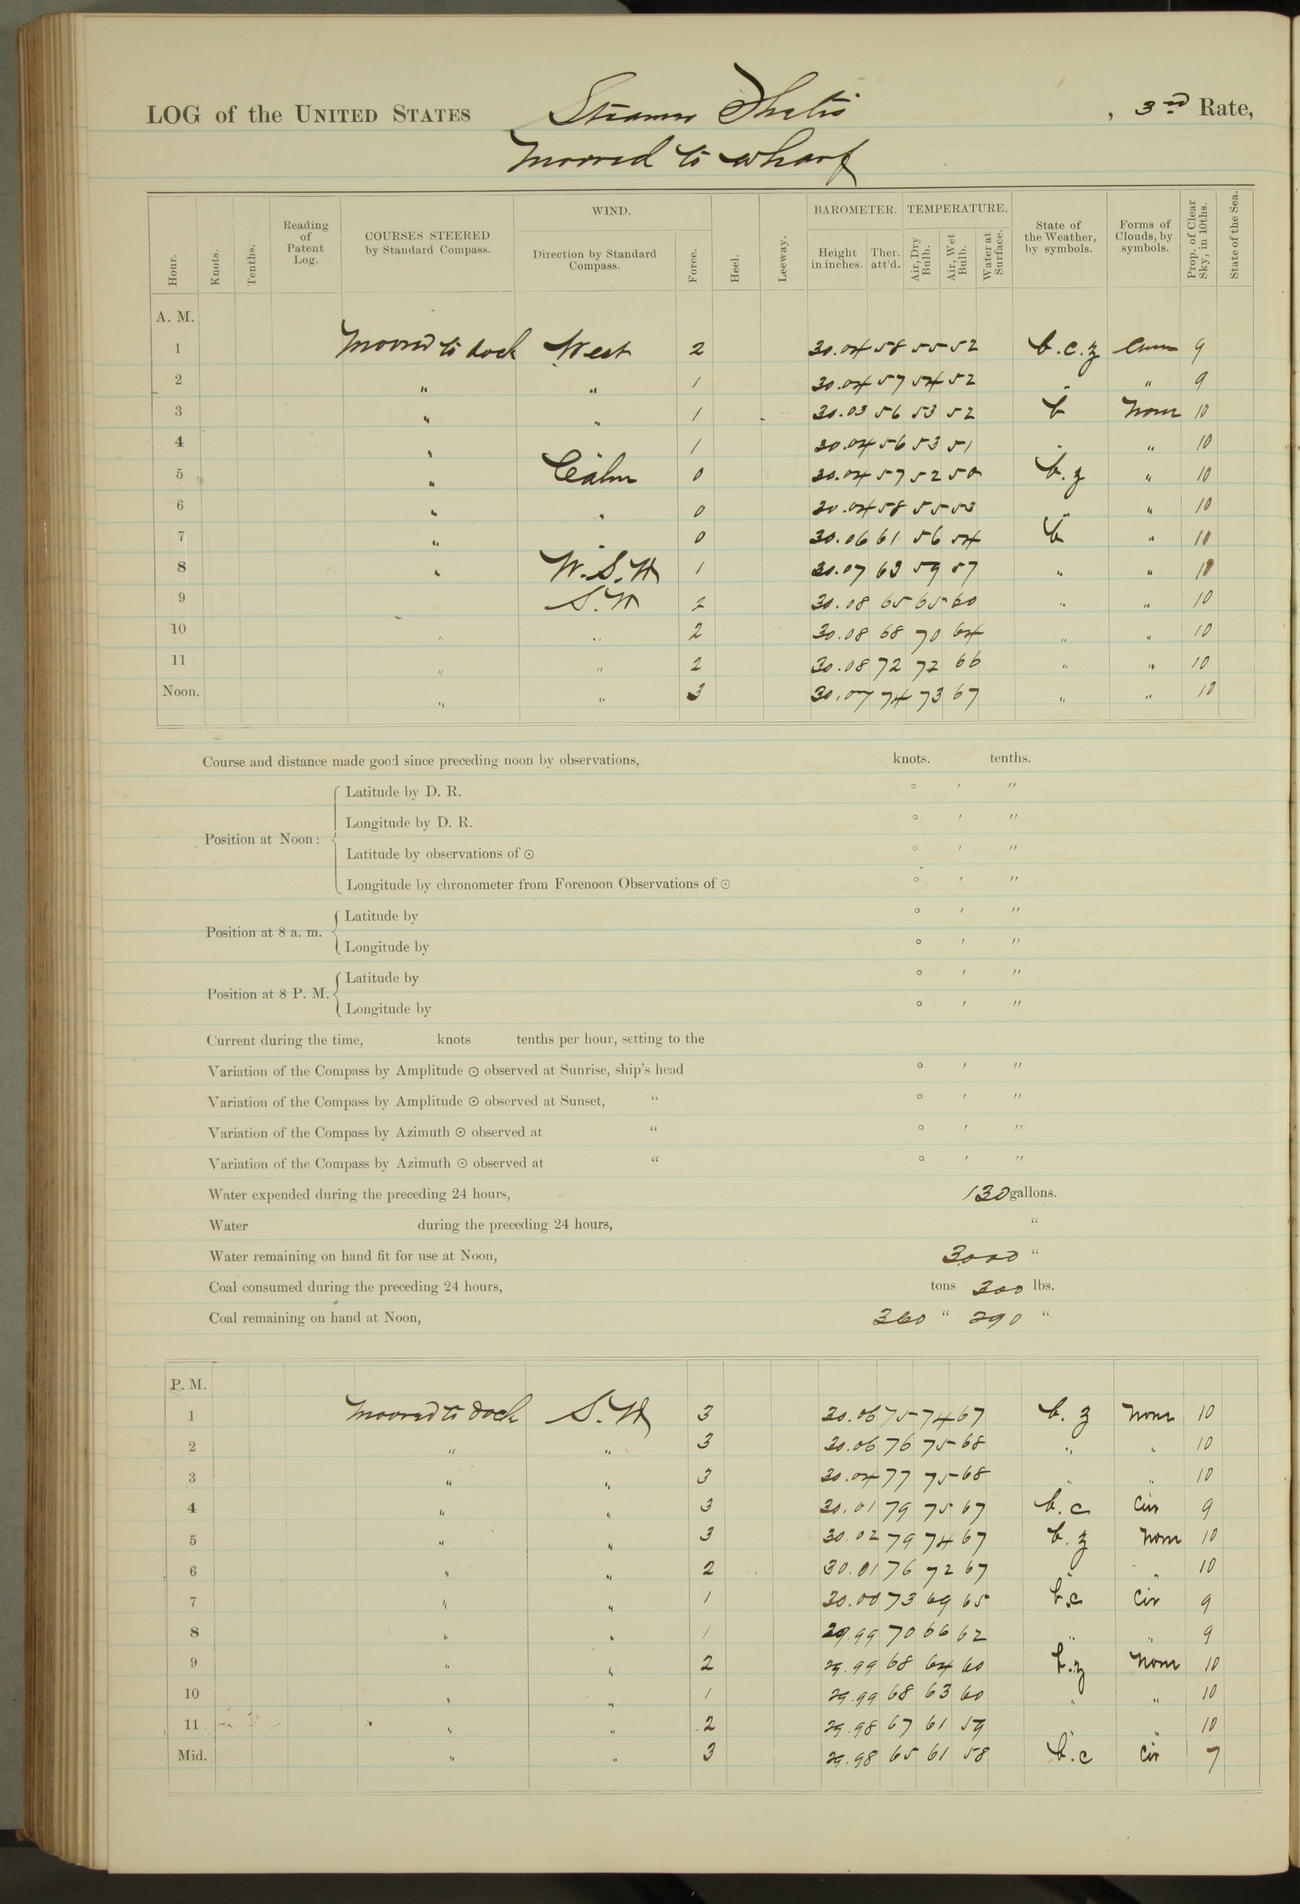 LOG of the UNITED STATES Steamer Thetis, 3rd Rate,
Moored to wharf
Hour. Knots. Tenths. Reading of Patent Log. COURSES STEERED by Standard Compass. WIND. Direction by Standard Compass. Force. Heel. Leeway. BAROMETER. Height in inches. Ther. att'd. TEMPERATURE. Air, Dry Bulb. Air, Wet Bulb. Water at Surface. State of the Weather, by symbols. Forms of Clouds, by symbols. Prop. of Clear Sky, in 10ths. State of the Sea.
A. M.
1 Moored to dock West 2 30.04 58 55 52 b.c.z Cum 9
2 " " 1 30.04 57 54 52 " " 9
3 " " 1 30.03 56 53 52 b None 10
4 " " 1 30.04 56 53 51 " " 10
5 " Calm 0 30.04 57 52 50 b.z " 10
6 " " 0 30.04 58 55 53 " " 10
7 " " 0 30.06 61 56 54 b " 10
8 " W.S.W 1 30.07 63 59 57 " " 10
9 S.W 2 30.08 65 65 60 " " 10
10 " " 2 30.08 68 70 64 " " 10
11 " " 2 30.08 72 72 66 " " 10
Noon. " " 3 30.07 74 73 67 " " 10
Course and distance made good since preceding noon by observations, knots. tenths.
Position at Noon: Latitude by D. R. ° ′ ″
Longitude by D. R. ° ′ ″
Latitude by observations of ⊙ ° ′ ″
Longitude by chronometer from Forenoon Observations of ⊙ ° ′ ″
Position at 8 a. m. Latitude by ° ′ ″
Longitude by ° ′ ″
Position at 8 P. M. Latitude by ° ′ ″
Longitude by ° ′ ″
Current during the time, knots tenths per hour, setting to the
Variation of the Compass by Amplitude ⊙ observed at Sunrise, ship's head ° ′ ″
Variation of the Compass by Amplitude ⊙ observed at Sunset, " ° ′ ″
Variation of the Compass by Azimuth ⊙ observed at " ° ′ ″
Variation of the Compass by Azimuth ⊙ observed at " ° ′ ″
Water expended during the preceding 24 hours, 130 gallons.
Water during the preceding 24 hours, "
Water remaining on hand fit for use at Noon, 3000 "
Coal consumed during the preceding 24 hours, tons 300 lbs.
Coal remaining on hand at Noon, 360 " 290 "
P. M.
1 Moored to dock S.W 3 30.06 75 74 67 b.z None 10
2 " " 3 30.06 76 75 68 " " 10
3 " " 3 30.04 77 75 68 " " 10
4 " " 3 30.01 79 75 67 b.c Cir 9
5 " " 3 30.02 79 74 67 b.z None 10
6 " " 2 30.01 76 72 67 " " 10
7 " " 1 30.00 73 69 65 b.c Cir 9
8 " " 1 29.99 70 66 62 " " 9
9 " " 2 29.99 68 64 60 b.z None 10
10 " " 1 29.99 68 63 60 " " 10
11 " " 2 29.98 67 61 59 " " 10
Mid. " " 3 29.98 65 61 58 b.c Cir 7